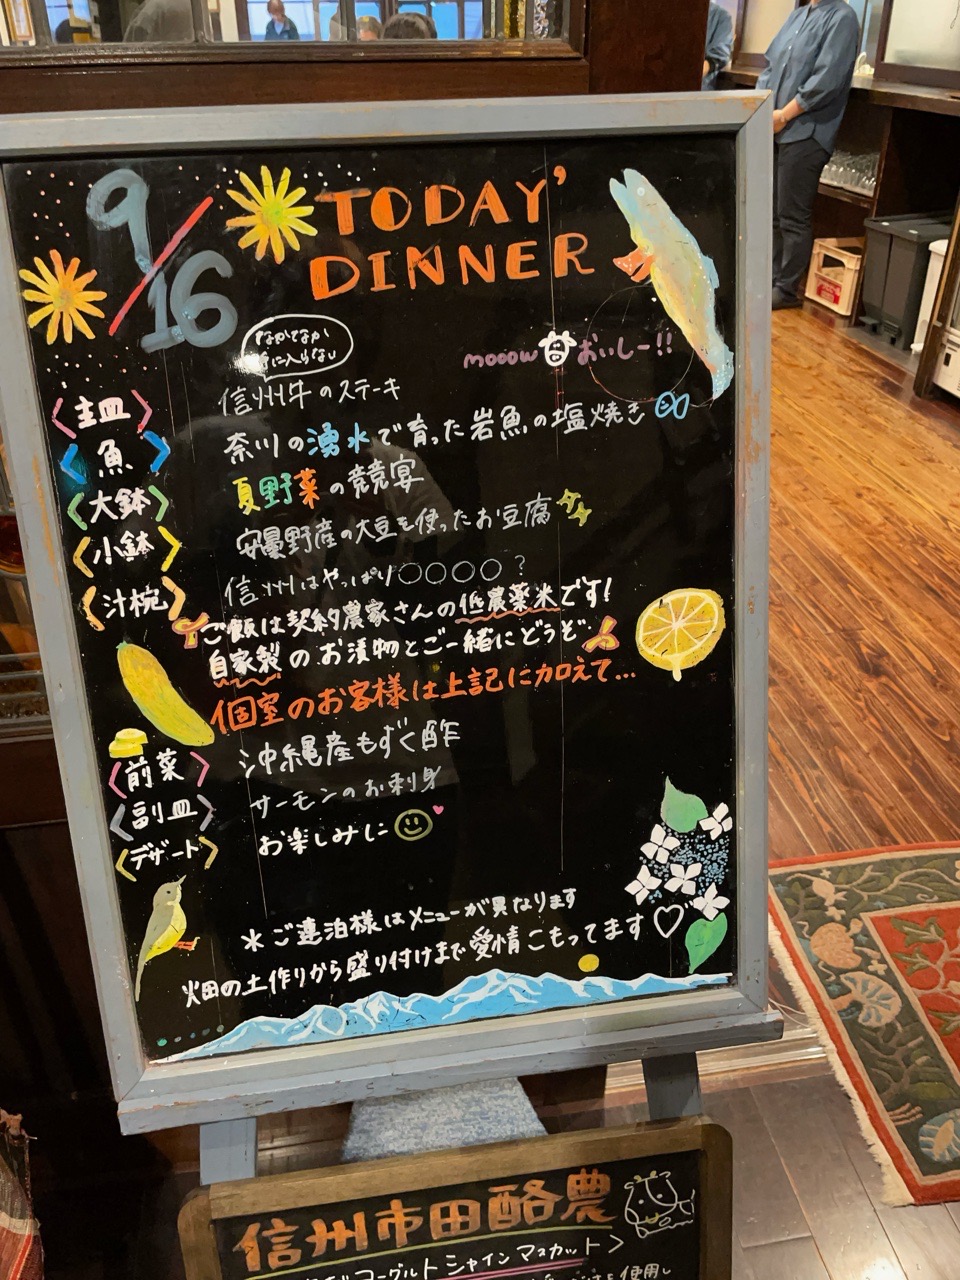 9/16
TODAY'
DINNER
なかなか
手に入らない
mooow おいしー!!
〈主皿〉 信州牛のステーキ
〈魚〉 奈川の湧水で育った岩魚の塩焼き
〈大鉢〉 夏野菜の競宴
〈小鉢〉 安曇野産の大豆を使ったお豆腐
〈汁椀〉 信州はやっぱり○○○○?
ご飯は契約農家さんの低農薬米です!
自家製のお漬物とご一緒にどうぞ
個室のお客様は上記に加えて…
〈前菜〉 沖縄産もずく酢
〈副皿〉 サーモンのお刺身
〈デザート〉 お楽しみに
*ご連泊様はメニューが異なります
畑の土作りから盛り付けまで愛情こもってます♡
信州市田酪農
ヨーグルト シャインマスカット〉
使用し